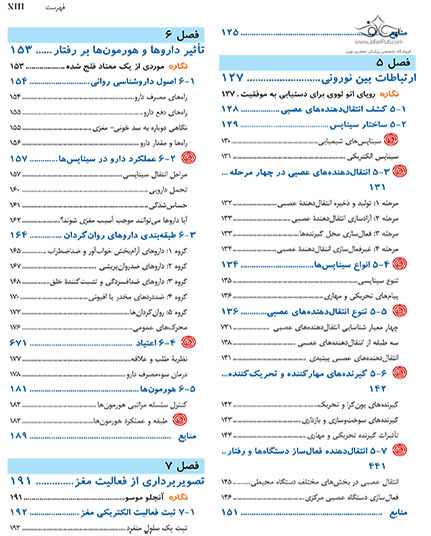 فهرست XIII
www.JafariPub.com
فروشگاه تخصصی پزشکی جعفری نوین
منابع ۱۲۵
فصل ۵
ارتباطات بین نورونی ۱۲۷
نگاره رویای اتو لووی برای دستیابی به موفقیت ۱۲۷
۵-۱ کشف انتقال‌دهنده‌های عصبی ۱۲۸
۵-۲ ساختار سیناپس ۱۲۹
سیناپس‌های شیمیایی ۱۳۰
سیناپس الکتریکی ۱۳۱
۵-۳ انتقال‌دهنده‌های عصبی در چهار مرحله
۱۳۱
مرحله ۱: تولید و ذخیره انتقال‌دهندهٔ عصبی ۱۳۲
مرحله ۲: آزادسازی انتقال‌دهندهٔ عصبی ۱۳۳
مرحله ۳: فعال‌سازی محل گیرنده‌ها ۱۳۳
مرحله ۴: غیرفعال‌سازی انتقال‌دهندهٔ عصبی ۱۳۴
۵-۴ انواع سیناپس‌ها ۱۳۴
تنوع سیناپسی ۱۳۵
پیام‌های تحریکی و مهاری ۱۳۶
۵-۵ تنوع انتقال‌دهنده‌های عصبی ۱۳۶
چهار معیار شناسایی انتقال‌دهنده‌های عصبی ۷۳۱
سه طبقه از انتقال‌دهنده‌های عصبی ۱۳۸
انتقال‌دهنده‌های عصبی پپتیدی ۱۴۱
۵-۶ گیرنده‌های مهارکننده و تحریک‌کننده
۱۴۲
گیرنده‌های یون‌گرا و تحریک ۱۴۲
گیرنده‌های سوخت‌وسازی و بازداری ۱۴۳
تأثیرات گیرنده تحریکی و مهاری ۱۴۴
۵-۷ انتقال‌دهنده فعال‌ساز دستگاه‌ها و رفتار
۴۴۱
انتقال عصبی در بخش‌های مختلف دستگاه محیطی ۱۴۵
فعال‌سازی دستگاه عصبی مرکزی ۱۴۶
منابع ۱۵۱
فصل ۶
تأثیر داروها و هورمون‌ها بر رفتار ۱۵۳
نگاره موردی از یک معتاد فلج شده ۱۵۳
۶-۱ اصول داروشناسی روانی ۱۵۴
راه‌های مصرف دارو ۱۵۴
راه‌های دفع دارو ۱۵۵
نگاهی دوباره به سد خونی- مغزی ۱۵۵
راه‌ها و مقدار دارو ۱۵۶
۶-۲ عملکرد دارو در سیناپس‌ها ۱۵۷
مراحل انتقال سیناپسی ۱۵۷
تحمل دارویی ۱۶۰
حساس‌شدگی ۱۶۱
آیا داروها می‌توانند موجب آسیب مغزی شوند؟ ۱۶۲
۶-۳ طبقه‌بندی داروهای روان‌گردان ۱۶۴
گروه ۱: داروهای آرام‌بخش خواب‌آور و ضداضطراب ۱۶۵
گروه ۲: داروهای ضدروان‌پریشی ۱۶۷
گروه ۳: داروهای ضدافسردگی و تثبیت‌کنندهٔ خلق ۱۶۸
گروه ۴: ضددردهای مخدر یا افیونی ۱۷۰
گروه ۵: روان‌گردان‌ها ۱۷۲
محرک‌های عمومی ۱۷۶
۶-۴ اعتیاد ۶۷۱
نظریهٔ طلب و علاقه ۱۷۷
درمان سوءمصرف دارو ۱۷۸
۶-۵ هورمون‌ها ۱۸۱
کنترل سلسله مراتبی هورمون‌ها ۱۸۲
طبقه و عملکرد هورمون‌ها ۱۸۲
منابع ۱۸۹
فصل ۷
تصویربرداری از فعالیت مغز ۱۹۱
نگاره آنجلو موسو ۱۹۱
۷-۱ ثبت فعالیت الکتریکی مغز ۱۹۲
ثبت یک سلول منفرد ۱۹۲